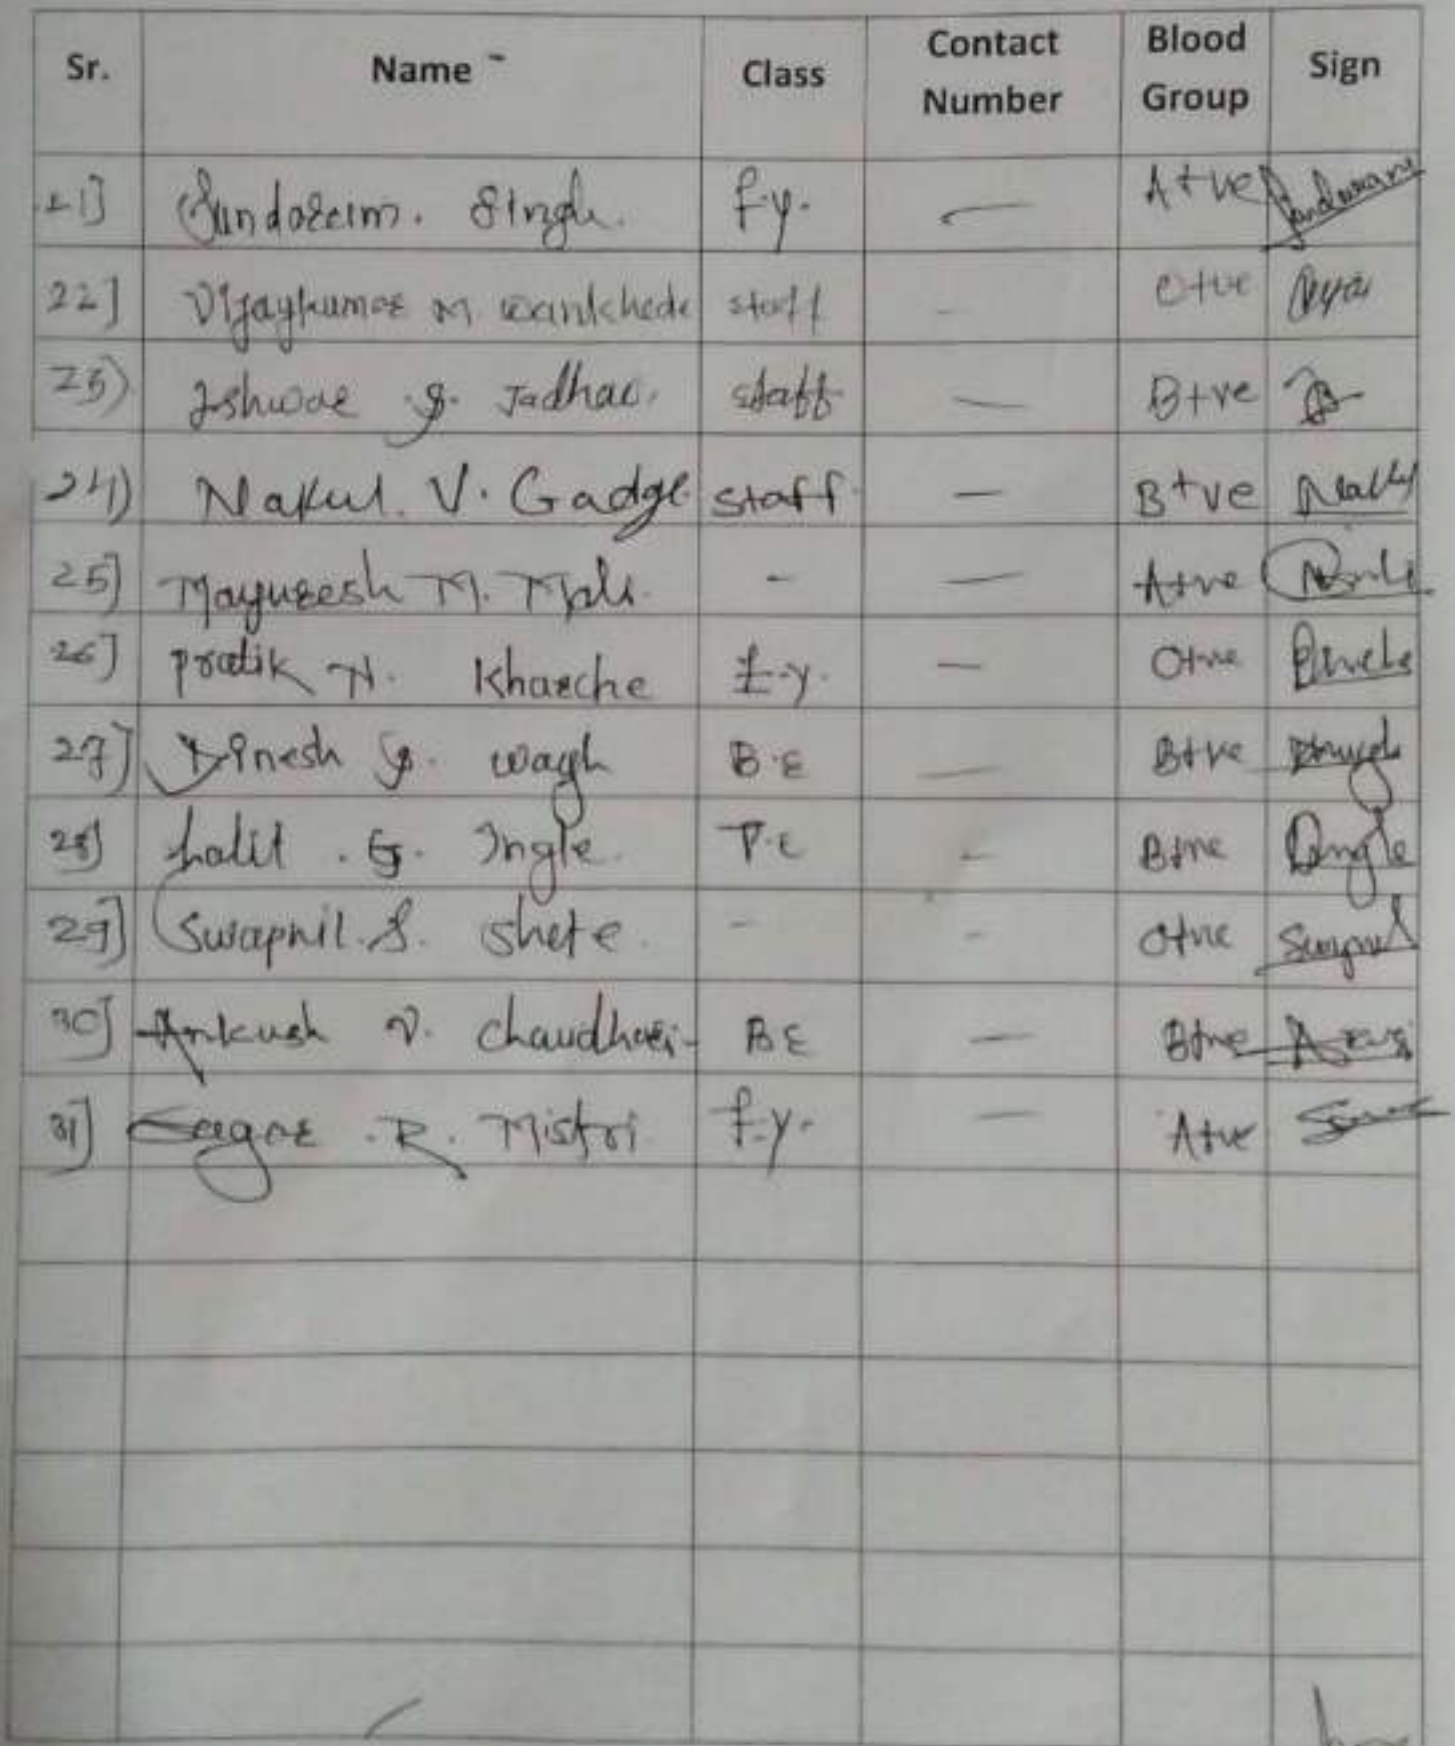 Sr. Name - Class Contact Number Blood Group Sign
21] Singh. f.y. — A+ve
22] Vijaykumar M wankhede staff - O+ve
23) Ishwar S. Jadhav. staff — B+ve
24) Nakul. V. Gadge staff — B+ve
25] Mayuresh M. Mali. - — A+ve
26] pratik N. Kharche f.y. — O+ve
27] Dinesh S. wagh B.E — B+ve
28] Lalit . G. Ingle. T.E - B+ve Ingle
29] Swapnil. S. shete. - - O+ve
30] Ankush V. chaudhari BE — B+ve
31] Sagar . R. Mistri f.y. — A+ve